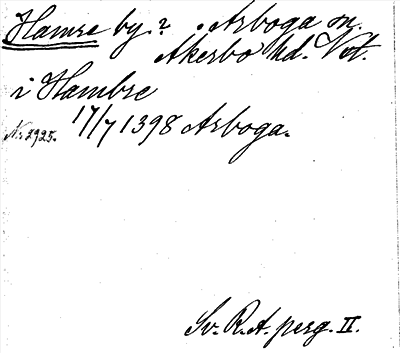 Hamre by? . Arboga m.
Åkerbo hd. Vstm.
i Hambre
No 2925. 17/7 1398 Arboga.
Sv. R.A. perg. II.